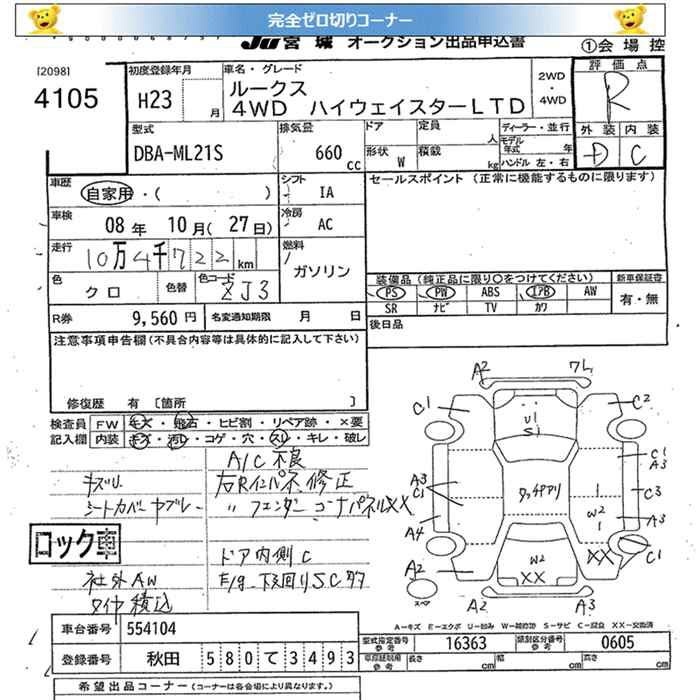 完全ゼロ切りコーナー
JU 宮城 オークション出品申込書
①会場控
[2098]
4105
初度登録年月
H23 月
車名・グレード
ルークス
4WD ハイウェイスターLTD
2WD
・
4WD
評価点
R
外装 内装
D C
型式
DBA-ML21S
排気量
660 cc
ドア
形状 W
定員 人
積載 kg
ディーラー・並行
モデル年式 年
ハンドル 左・右
車歴
自家用・( )
シフト
IA
セールスポイント (正常に機能するものに限ります)
車検
08年 10月( 27日)
冷房
AC
走行
10万4千722km
燃料
ガソリン
色
クロ
色替
色コード
ZJ3
装備品(純正品に限り○をつけてください)
新車保証書
PS PW ABS エアB AW
有・無
SR ナビ TV カワ
R券
9,560円
名変通知期限 月 日
後日品
注意事項申告欄(不具合内容等は具体的に記入して下さい)
修復歴 有〔箇所 〕
検査員 FW キズ・飛石・ヒビ割・リペア跡・×要
記入欄 内装 キズ・汚レ・コゲ・穴・スレ・キレ・破レ
A/C 不良
キズU 右Rインパネ修正
シートカバーヤブレ 〃 フェンダー コーナパネルXX
ロック車
ドア内側C
社外AW E/g 下廻りSCサワ
タイヤ積込
A2 フレ
C1 C2
U1
S1
C1
A3
A3
C1
タッチアリ
C3
W2
A3
A4
A2
W2
XX
XX
C1
スペア
A2 A3
A-キズ E-エクボ U-凹み W-補修跡 S-サビ C-腐食 XX-交換済
車台番号 554104
型式指定番号 参考 16363 類別区分番号 参考 0605
登録番号 秋田 580て3493
車庫証明用 参考 長さ cm 幅 cm 高さ cm
希望出品コーナー(コーナーは各会場により異なります。)